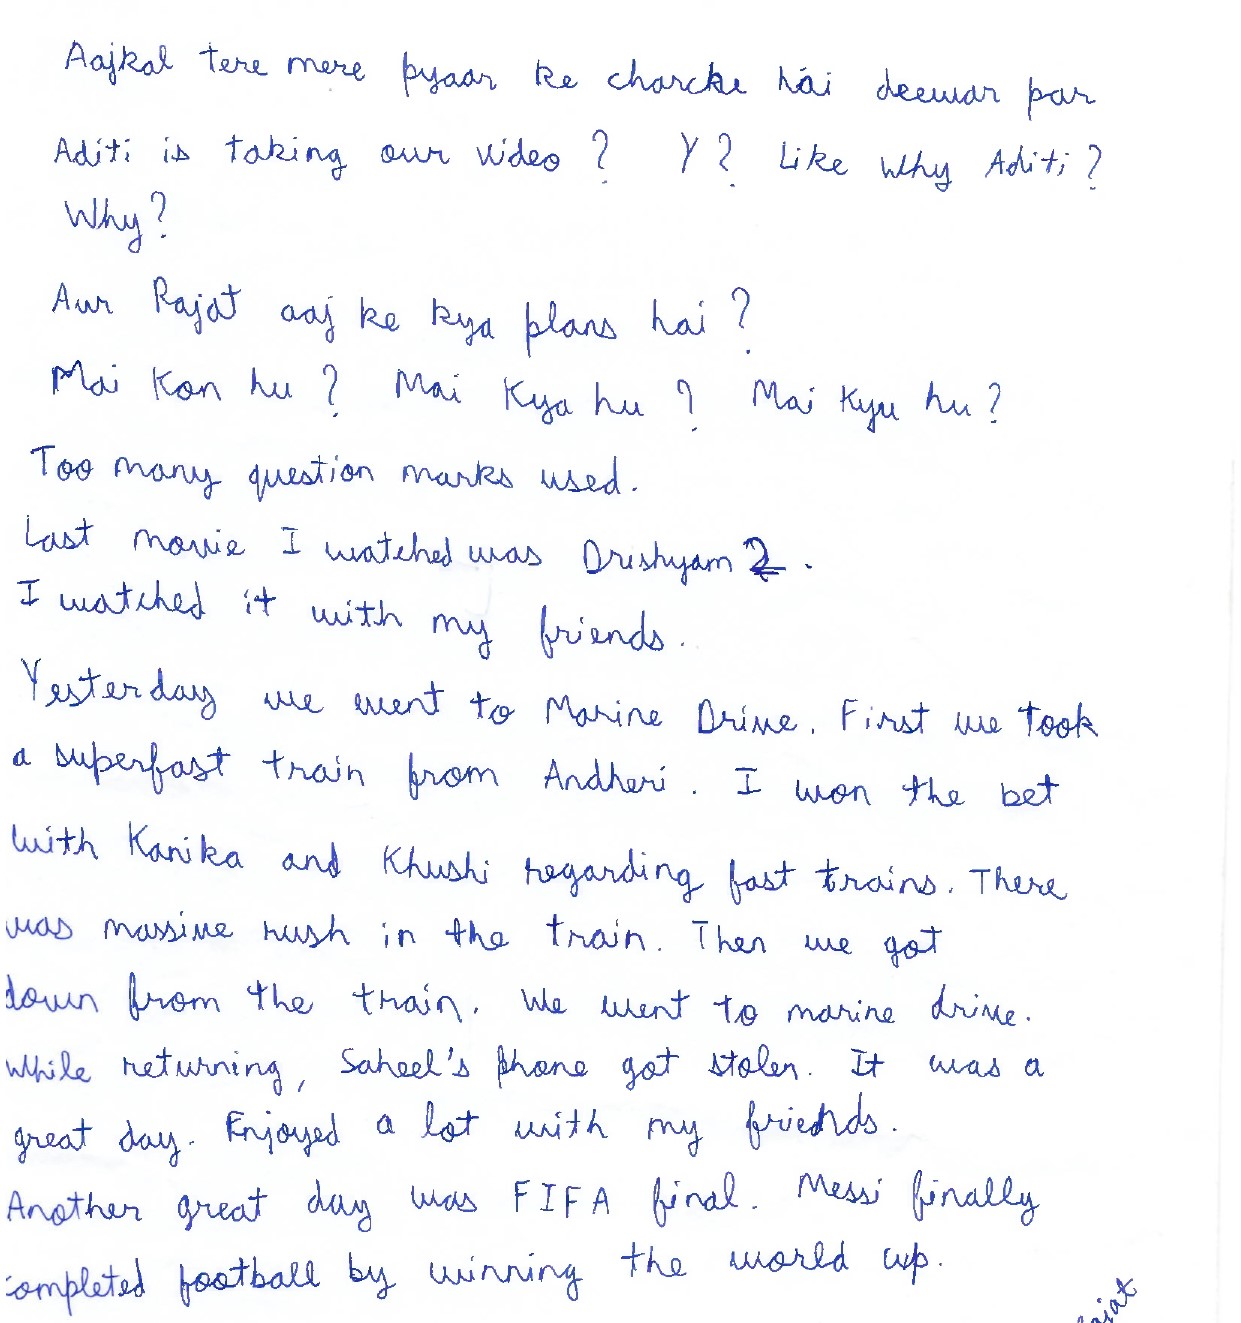 Aajkal tere mere pyaar ke charche hai deewar par
Aditi is taking our video? Y? Like why Aditi?
Why?
Aur Rajat aaj ke kya plans hai?
Mai Kon hu? Mai Kya hu? Mai Kyu hu?
Too many question marks used.
Last movie I watched was Drishyam 2.
I watched it with my friends.
Yesterday we went to Marine Drive. First we took
a superfast train from Andheri. I won the bet
with Kanika and Khushi regarding fast trains. There
was massive rush in the train. Then we got
down from the train. We went to marine drive.
While returning, Saheel's phone got stolen. It was a
great day. Enjoyed a lot with my friends.
Another great day was FIFA final. Messi finally
completed football by winning the world cup.